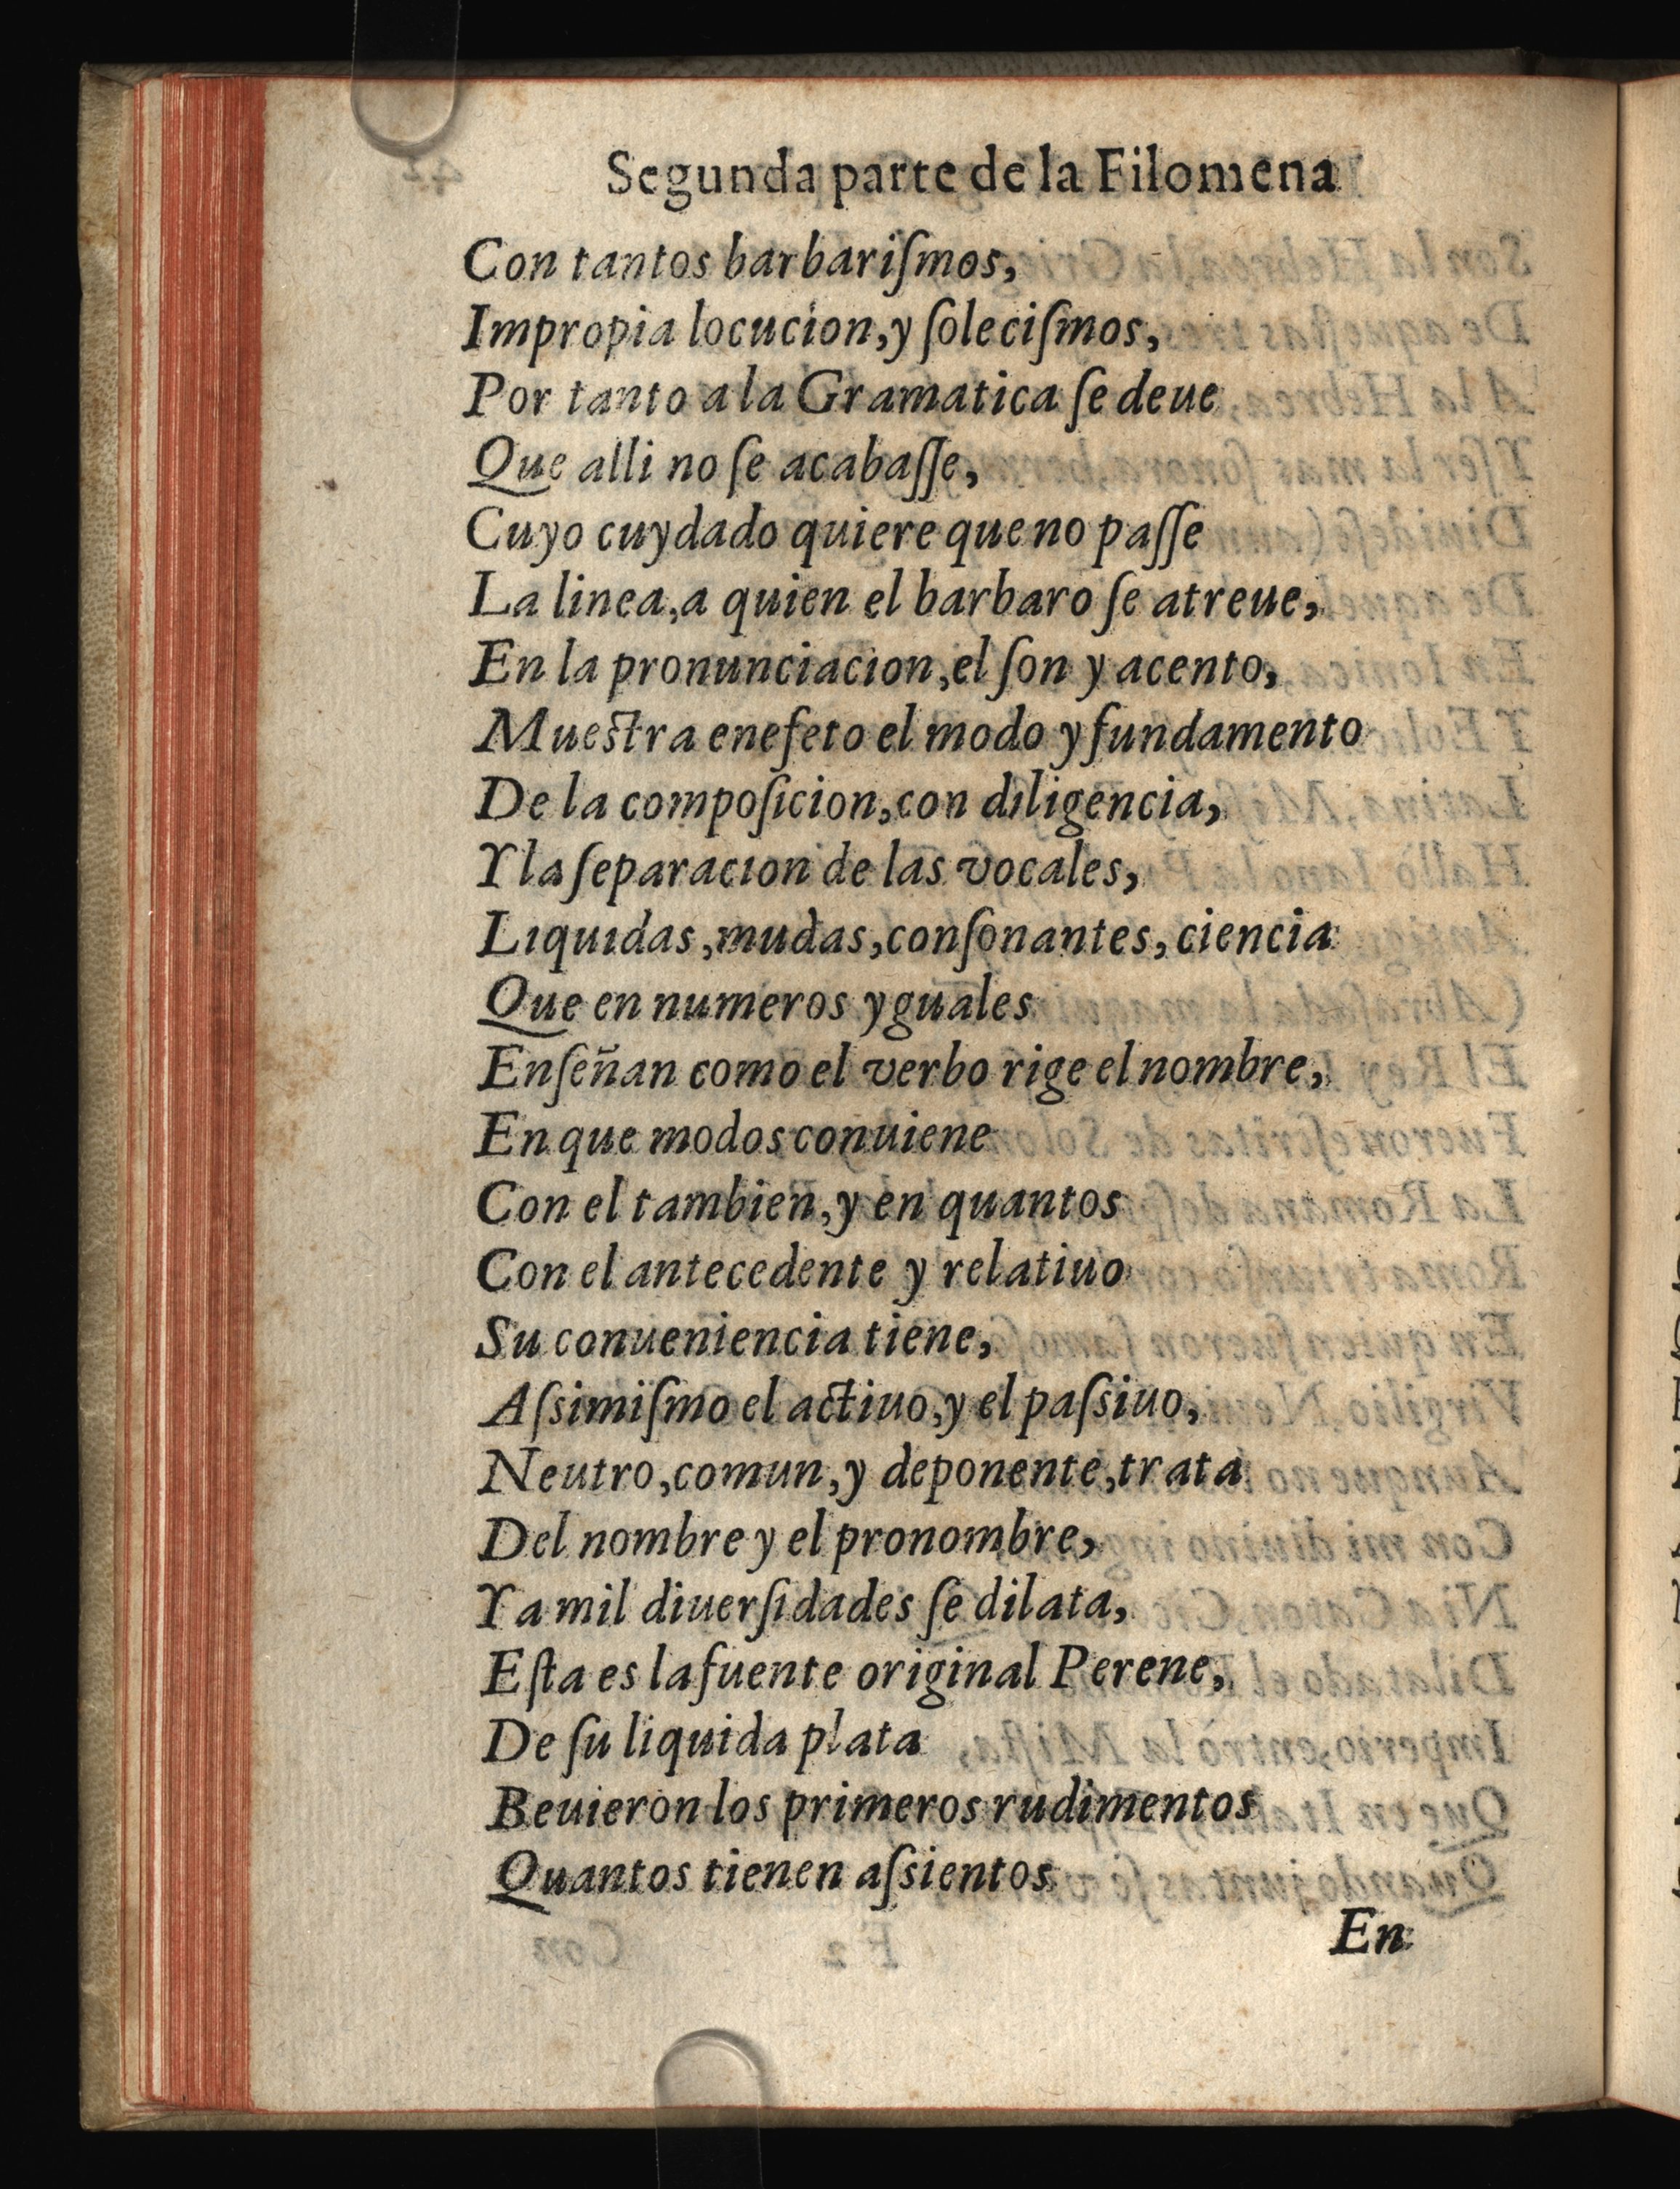 Segunda parte de la Filomena
Con tantos barbariſmos,
Impropia locucion, y ſoleciſmos,
Por tanto a la Gramatica ſe deue
Que alli no ſe acabaſſe,
Cuyo cuydado quiere que no paſſe
La linea, a quien el barbaro ſe atreue,
En la pronunciacion, el ſon y acento,
Mueſtra enefeto el modo y fundamento
De la compoſicion, con diligencia,
Y la ſeparacion de las vocales,
Liquidas, mudas, conſonantes, ciencia
Que en numeros yguales
Enſeñan como el verbo rige el nombre,
En que modos conuiene
Con el tambien, y en quantos
Con el antecedente y relatiuo
Su conueniencia tiene,
Aſsimiſmo el actiuo, y el paſsiuo,
Neutro, comun, y deponente, trata
Del nombre y el pronombre,
Y a mil diuerſidades ſe dilata,
Eſta es la fuente original Perene,
De ſu liquida plata
Beuieron los primeros rudimentos
Quantos tienen aſsientos
En